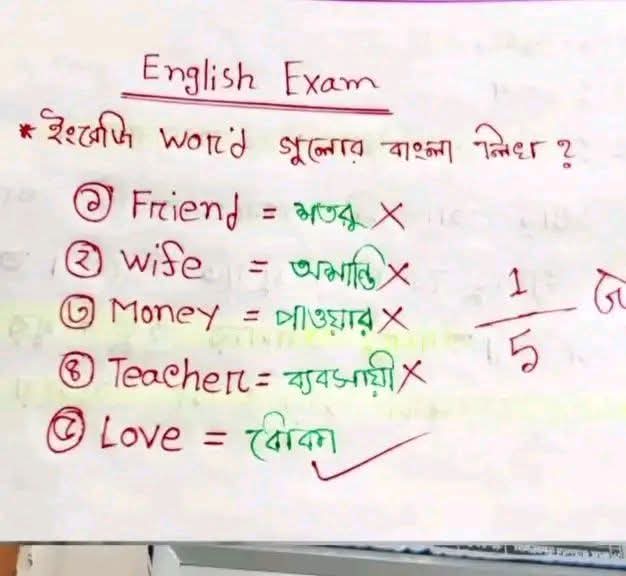 English Exam
* ইংরেজি word গুলোর বাংলা লিখ ?
১ Friend = শতরু ×
২ Wife = অশান্তি ×
৩ Money = পাওয়ার ×
৪ Teacher = ব্যবসায়ী ×
৫ Love = বোকা ✓
1/5